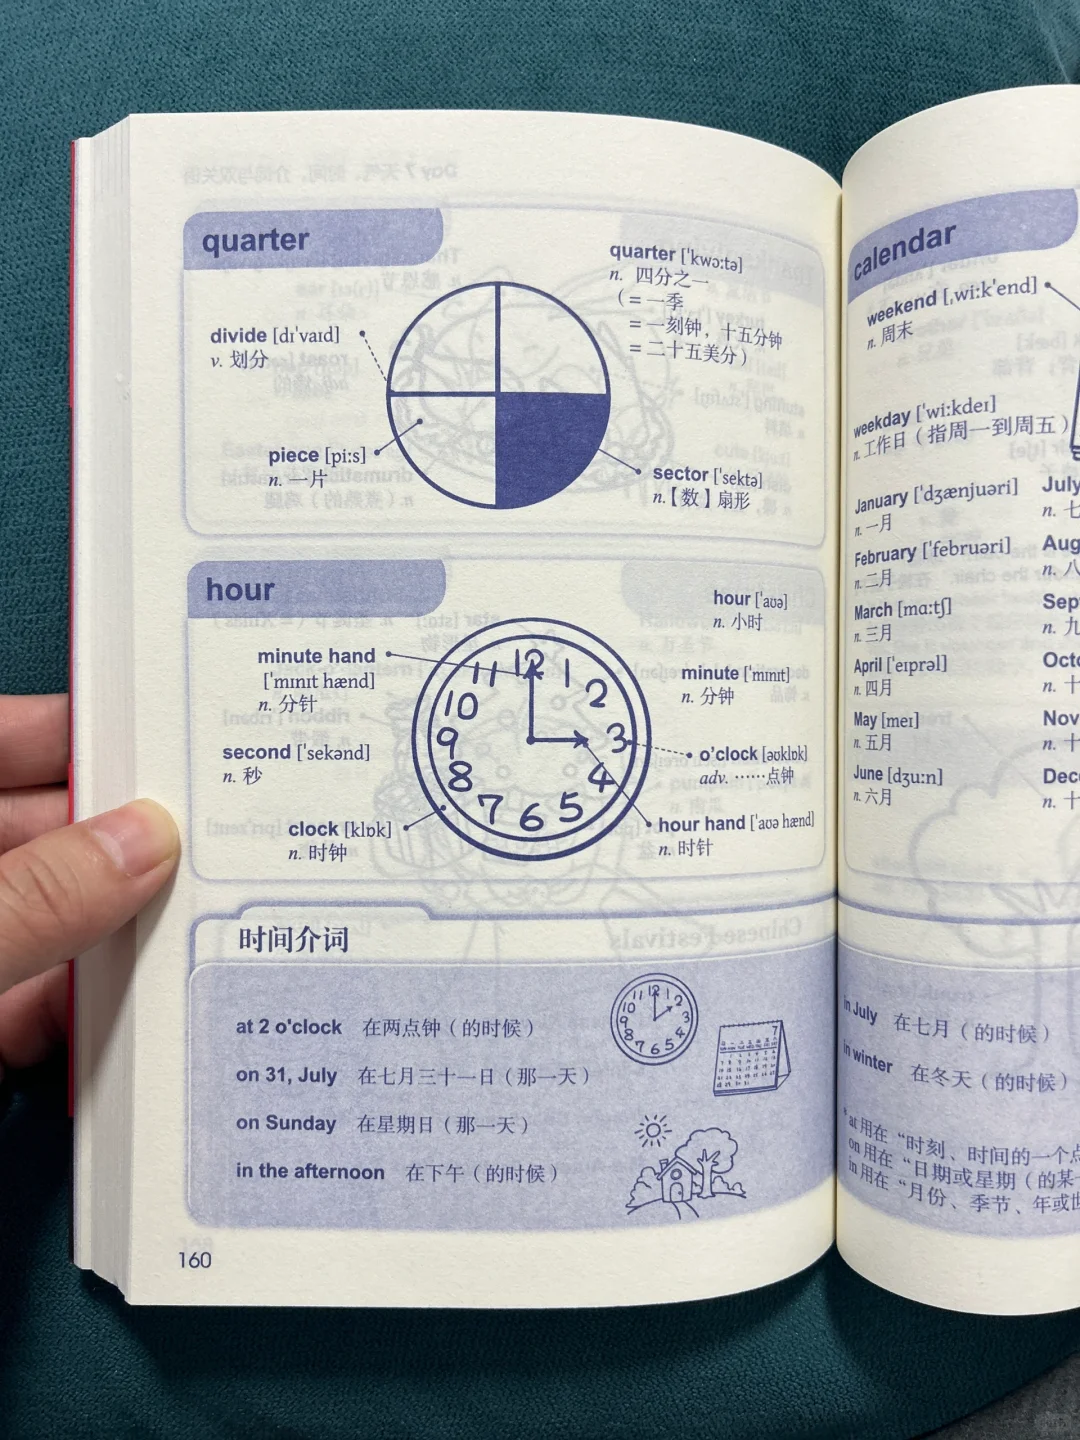 quarter
quarter ['kwɔ:tə]
n. 四分之一
（= 一季
= 一刻钟，十五分钟
= 二十五美分）
divide [dɪ'vaɪd]
v. 划分
piece [pi:s]
n. 一片
sector ['sektə]
n.【数】扇形
hour
hour ['aʊə]
n. 小时
minute hand
['mɪnɪt hænd]
n. 分针
minute ['mɪnɪt]
n. 分钟
second ['sekənd]
n. 秒
o'clock [əʊklɒk]
adv. ……点钟
clock [klɒk]
n. 时钟
hour hand ['aʊə hænd]
n. 时针
12 1 2 3 4 5 6 7 8 9 10 11
时间介词
at 2 o'clock 在两点钟（的时候）
on 31, July 在七月三十一日（那一天）
on Sunday 在星期日（那一天）
in the afternoon 在下午（的时候）
12 1 2 3 4 5 6 7 8 9 10 11
7
160
calendar
weekend [ˌwi:k'end]
n. 周末
weekday ['wi:kdeɪ]
n. 工作日（指周一到周五）
January ['dʒænjuəri]
n. 一月
February ['februəri]
n. 二月
March [mɑ:tʃ]
n. 三月
April ['eɪprəl]
n. 四月
May [meɪ]
n. 五月
June [dʒu:n]
n. 六月
July
n. 七
Aug
n. 八
Sep
n. 九
Octo
n. 十
Nov
n. 十
Dece
n. 十
in July 在七月（的时候）
in winter 在冬天（的时候）
* at 用在“时刻、时间的一个点
on 用在“日期或星期（的某一
in 用在“月份、季节、年或世